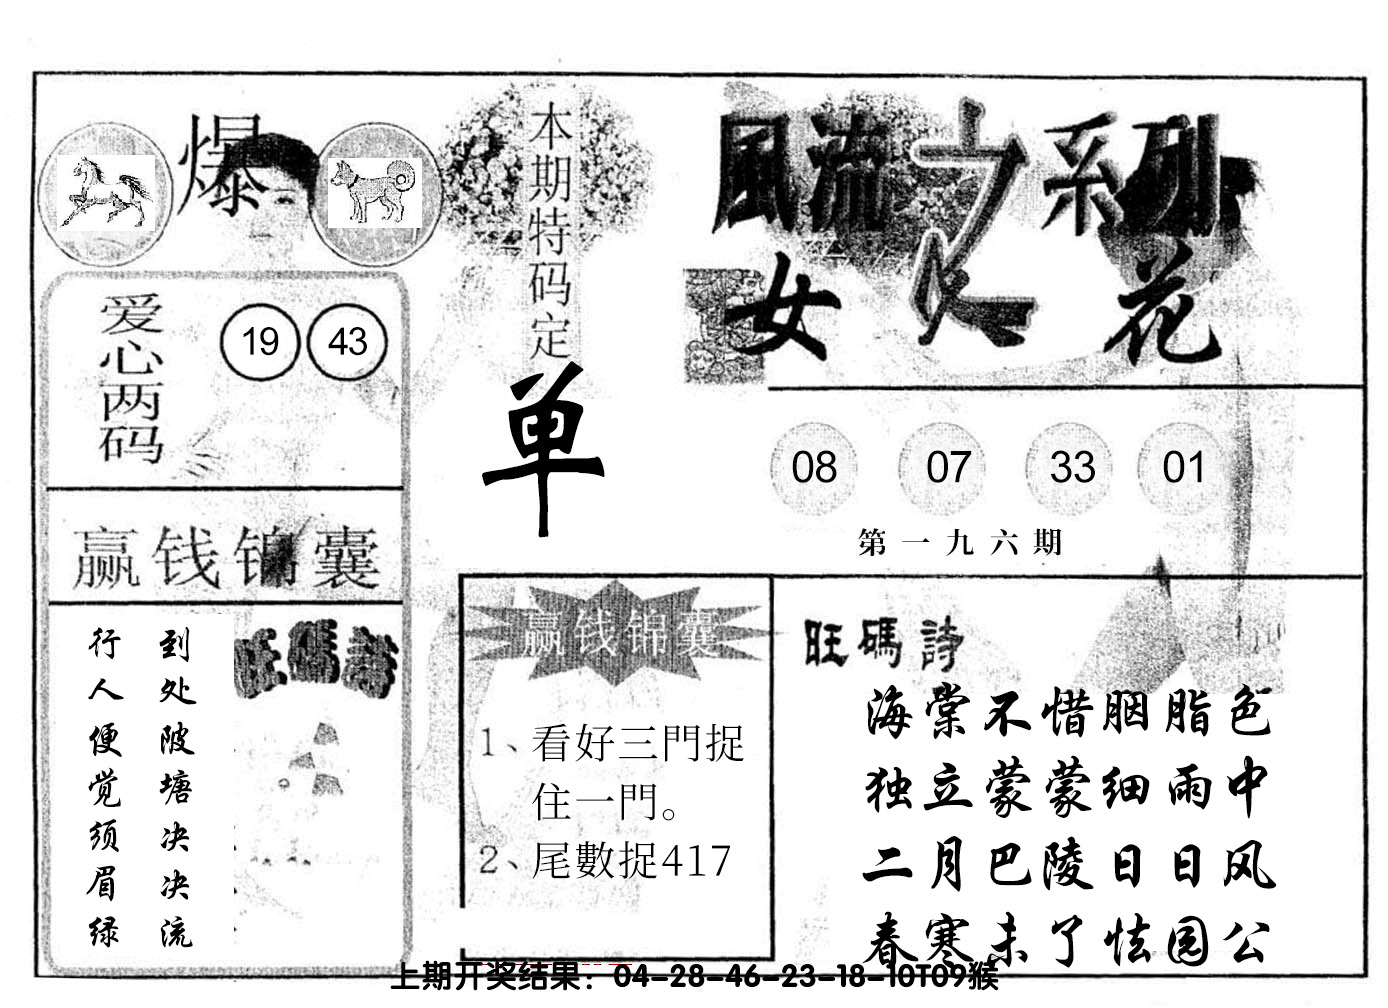 爆
本期特码定
单
風流之系列
女人花
爱心两码
19 43
08 07 33 01
第一九六期
赢钱锦囊
到处陂塘决决流
行人便觉须眉绿
旺碼詩
赢钱锦囊
1、看好三門捉
住一門。
2、尾數捉417
旺碼詩
海棠不惜胭脂色
独立蒙蒙细雨中
二月巴陵日日风
春寒未了怯园公
上期开奖结果：04-28-46-23-18-10T09猴